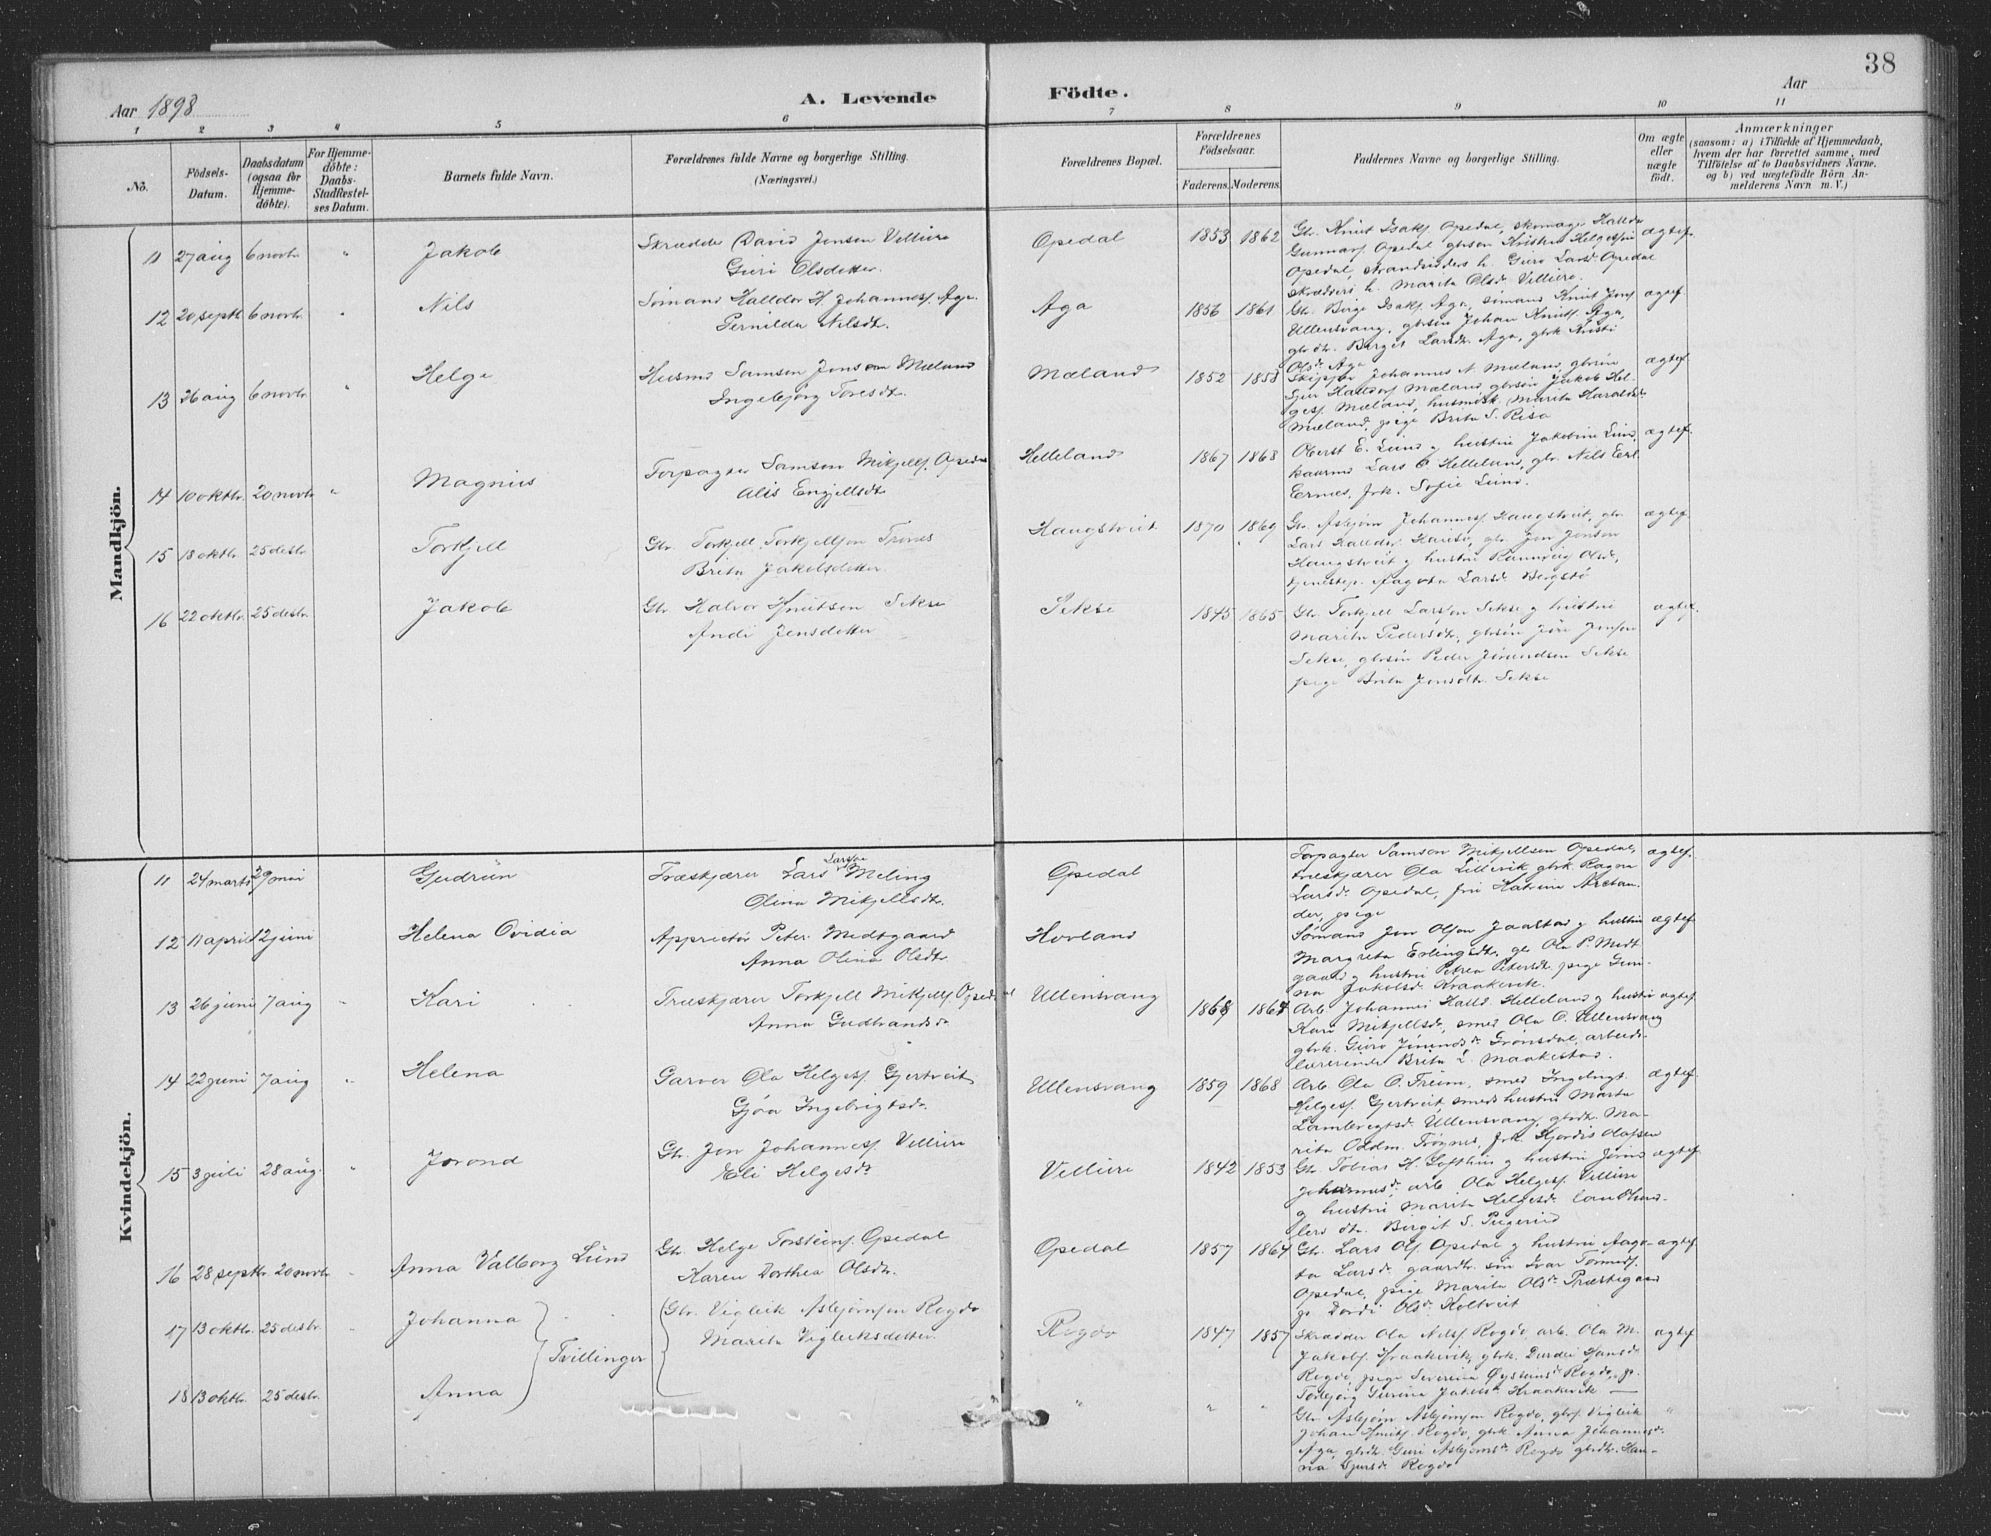 38
Aar 1898
A. Levende
Födte.
Aar
1
2
3
4
5
6
7
8
9
10
11
No.
Födsels-
Datum.
Daabsdatum
(ogsaa for
Hjemme-
döbte).
For Hjemme-
döbte:
Daabs-
Stadfæstel-
ses Datum.
Barnets fulde Navn.
Forældrenes fulde Navne og borgerlige Stilling.
(Næringsvei.)
Forældrenes Bopæl.
Forældrenes
Födselsaar.
Faderens.
Moderens.
Faddernes Navne og borgerlige Stilling.
Om ægte
eller
uægte
født.
Anmærkninger
(saasom: a) i Tilfælde af Hjemmedaab,
hvem der har forrettet samme, med
Tilföielse af to Daabsvidners Navne.
og b) ved uægtefödte Börn An-
melderens Navn m. V.)
Mandkjön.
11 27 aug 6 novbr. " Jakob
Skrædder David Jonsen Velliire
Guri Olsdatter.
Opedal 1853 1862
Gbr. Knut Isaks. Opedal, skomager Halldor
Gunnars. Opedal gbrsøn Kristen Helgesøn
Opedal, strandsidders h. Guro Larsd. Opedal
skrædders h. Marita Olsd. Velliire.
ægtef.
12 20 septbr. 6 novbr. " Nils
Sømand Halldor H. Johanness. Aga.
Pernilda Nilsdt.
Aga 1856 1861
Gbr. Birge Isaks. Aga, sømand Knut Jons.
Ullensvang, gbrsøn Johan Knuts. Aga,
gbrdtr. Birget Larsdr. Aga, gbrk. Kristi
Olsd. Aga
ægtef.
13 26 aug 6 novbr. " Helge
Husmd Samson Jonson Mæland
Ingebjørg Toresdt.
Mæland 1852 1858
Skipper Johannes N. Mæland, gbrsøn
Sjur Halldors. Mæland, gbrsøn Jakob Hel-
ges. Mæland, husmdsk. Marita Haraldsd.
Mæland, pige Brita S. Risa
ægtef.
14 10 oktbr. 20 novbr. " Magnus
Forpagter Samson Mikjells. Opedal
Alis Engjellsdt.
Helleland 1867 1868
Oberst E. Lund og hustru Jakobine Lund,
Lars O. Helleland, gbr. Nils Erl.
Ernes, frk. Sofie Lund.
ægtef.
15 18 oktbr. 25 desbr. Torkjell
Gbr. Torkjell Torkjellson Trones
Brita Jakobsdatter
Haugstveit 1870 1869
Gbr. Asbjørn Johanness. Haugstveit, gbr.
Lars Halldor. , gbr. Jon Jonson
Haugstveit og hustru Rannveig Olsdt.,
tjenestep. Aagota Larsd. Bergstø
ægtef.
16 22 oktbr. 25 desbr. Jakob
Gbr. Halvor Knutsen Sekse
Andi Jensdatter
Sekse 1845 1865
Gbr. Torkjell Larson Sekse og hustru
Marita Pedersdtr., gbrsøn Jens
Sekse, gbrsøn Peder Jørundsen Sekse
pige Brita Jonsdtr. Sekse
ægtef.
Kvindekjön.
11 24 marts 29 mai Gudrun
Træskjærer Lars Larson Meling
Olina Mikjellsdtr.
Opedal
Forpagter Samson Mikjellsen Opedal,
træskjærer Ola Lillevik gbrk. Ragna
Larsd. Opedal, fru Katrine Arctan-
der, pige
ægtef.
12 11 april 12 juni Helena Ovidia
Appretør Peter Midtgaard
Anna Olina Olsdtr.
Hovland
Sømand Jon Olson Jaastad og hustru
Margreta Erlingsdtr. gbr. Ola P. Midt-
gaard og hustru Petrea Petersdt. pige Gun-
na Jakobsd. Kraakevik.
ægtef.
13 26 juni 7 aug " Kari
Træskjærer Torkjell Mikjells. Opedal
Anna Gudbrandsd.
Ullensvang 1868 1864
Arb. Johannes Halld. Helleland og hustru
Kari Mikjellsdr., smed Ola O. Ullensvang
gbrk. Guro Jørundsdr. Grønsdal, arbeids-
lærerinde Brita L. Maakestad.
ægtef.
14 22 juni 7 aug " Helena
Garver Ola Helges. Gjertveit
Gjøa Ingebrigtsdr.
Ullensvang 1859 1868
Arb. Ola O. Freim, smed Ingebrigt
Helges. Gjertveit smeds hustru Marta
Lambregtsd. Ullensvang, gbrdtr. Ma-
rita Oddm. Trones, frk. Hjordis Olafsen
ægtef.
15 3 juli 28 aug. " Jorond
Gbr. Jon Johanness. Velliire
Eli Helgesdr.
Velliire 1842 1853
Gbr. Tobias H. Lofthus og hustru
Johannesdr. arb. Ola Helges. Velliire
og hustru Marita Helgesd. landhand-
lers dtr. Birgit S.
ægtef.
16 28 septbr. 20 novbr. Anna Valborg Lund
Gbr. Helge Torsteins. Opedal
Karen Dorthea Olsdtr.
Opedal 1857 1864
Gbr. Lars Ols. Opedal og hustru Aago-
ta Larsd. gaardbr. søn Ivar Tormods.
Opedal, pige Marita Olsdr. Præstegaard
p. Dordi Olsd. Holtveit
ægtef.
17 13 oktbr. 25 desbr. Johanna
Tvillinger
Gbr. Vigleik Asbjørnsen Rogde
Marita Vigleiksdatter.
Rogde 1847 1857
Skrædder Ola Nels. Rogde, arb. Ola M.
Jakobs. Kraakevik, gbrk. Durdei Hansd.
Rogde, pige Severina Øysteinsd. Rogde, p.
Torbjørg Jakobsd. Kraakevik
ægtef.
18 13 oktbr. 25 desbr. Anna
" " "
Gbr. Asbjørn Asbjørnsen Rogde, gbrs. Vigleik
Johan Knuts. Rogde, gbrk. Anna Johannesd.
Aga, gbrdt. Guri Asbjørnsd. Rogde gbrdtr. Han-
na Sjursd. Rogde
"